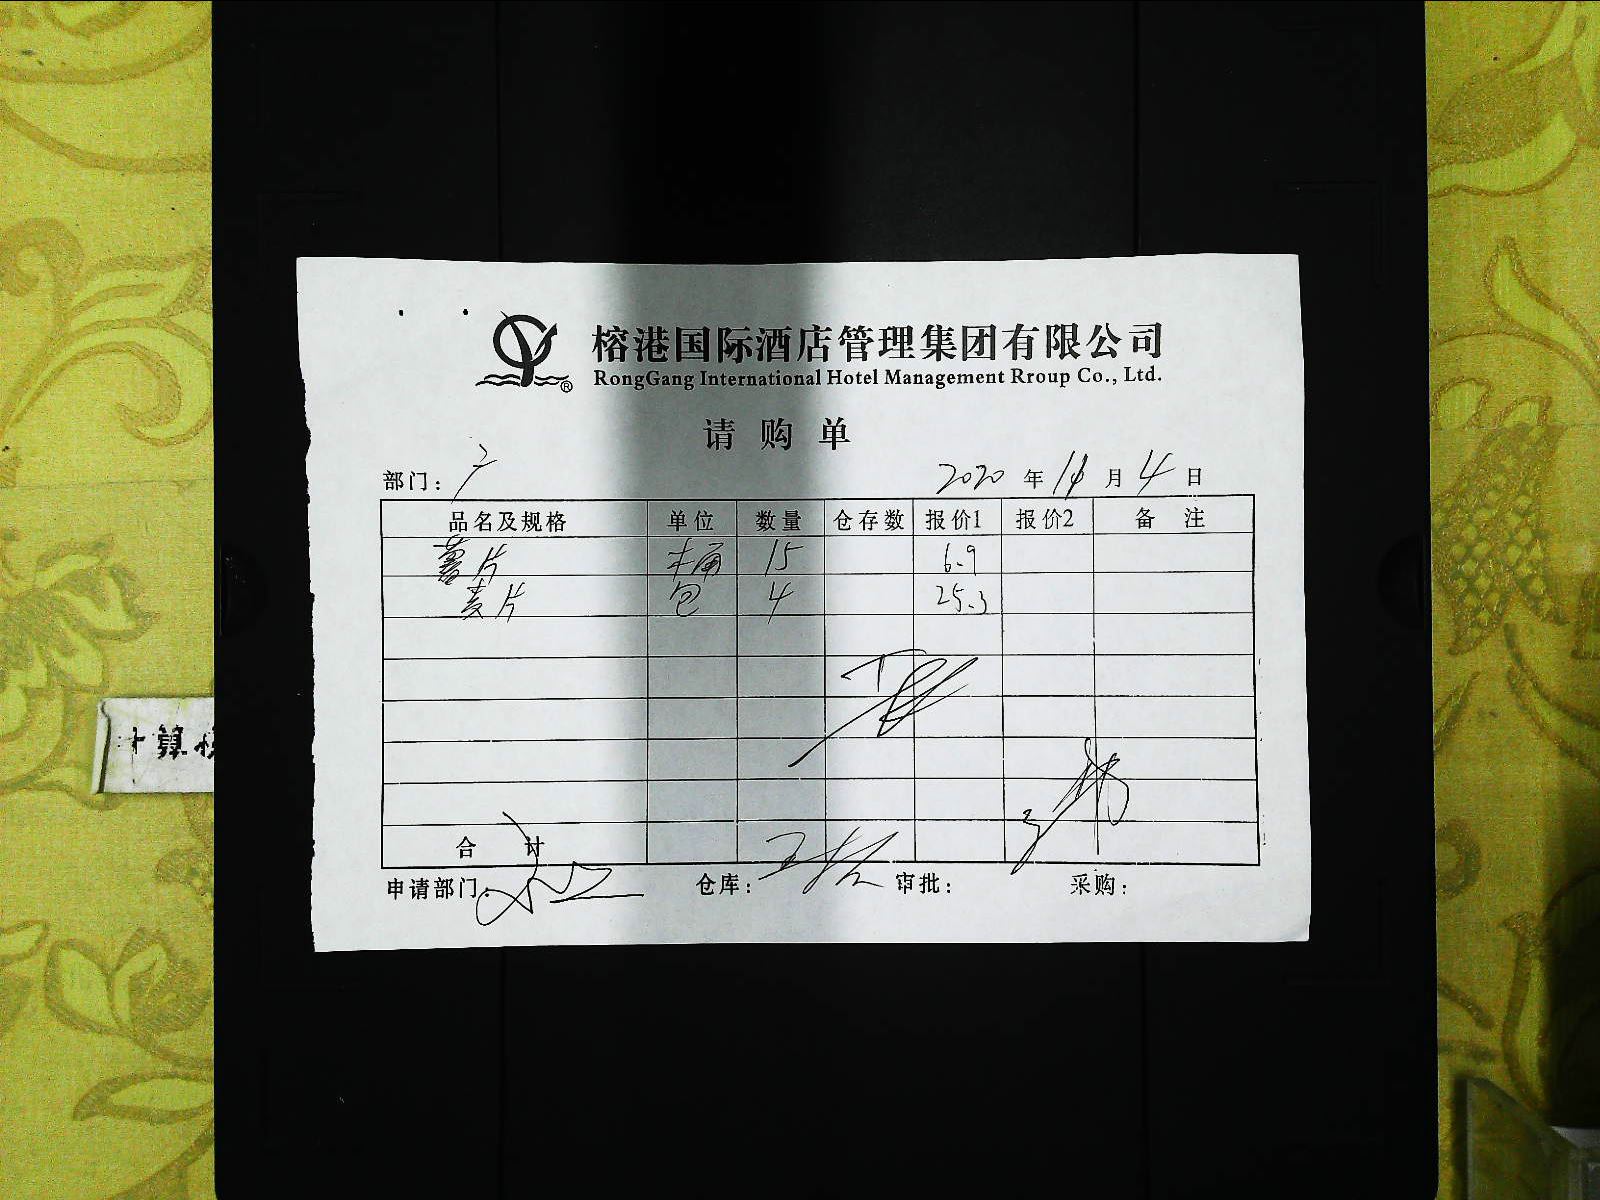 榕港国际酒店管理集团有限公司
RongGang International Hotel Management Rroup Co., Ltd.
®
请购单
部门: 2020年11月4日
品名及规格 单位 数量 仓存数 报价1 报价2 备注
薯片 桶 15 6.9
麦片 包 4 25.3
合计
申请部门: 仓库: 审批: 采购:
计算